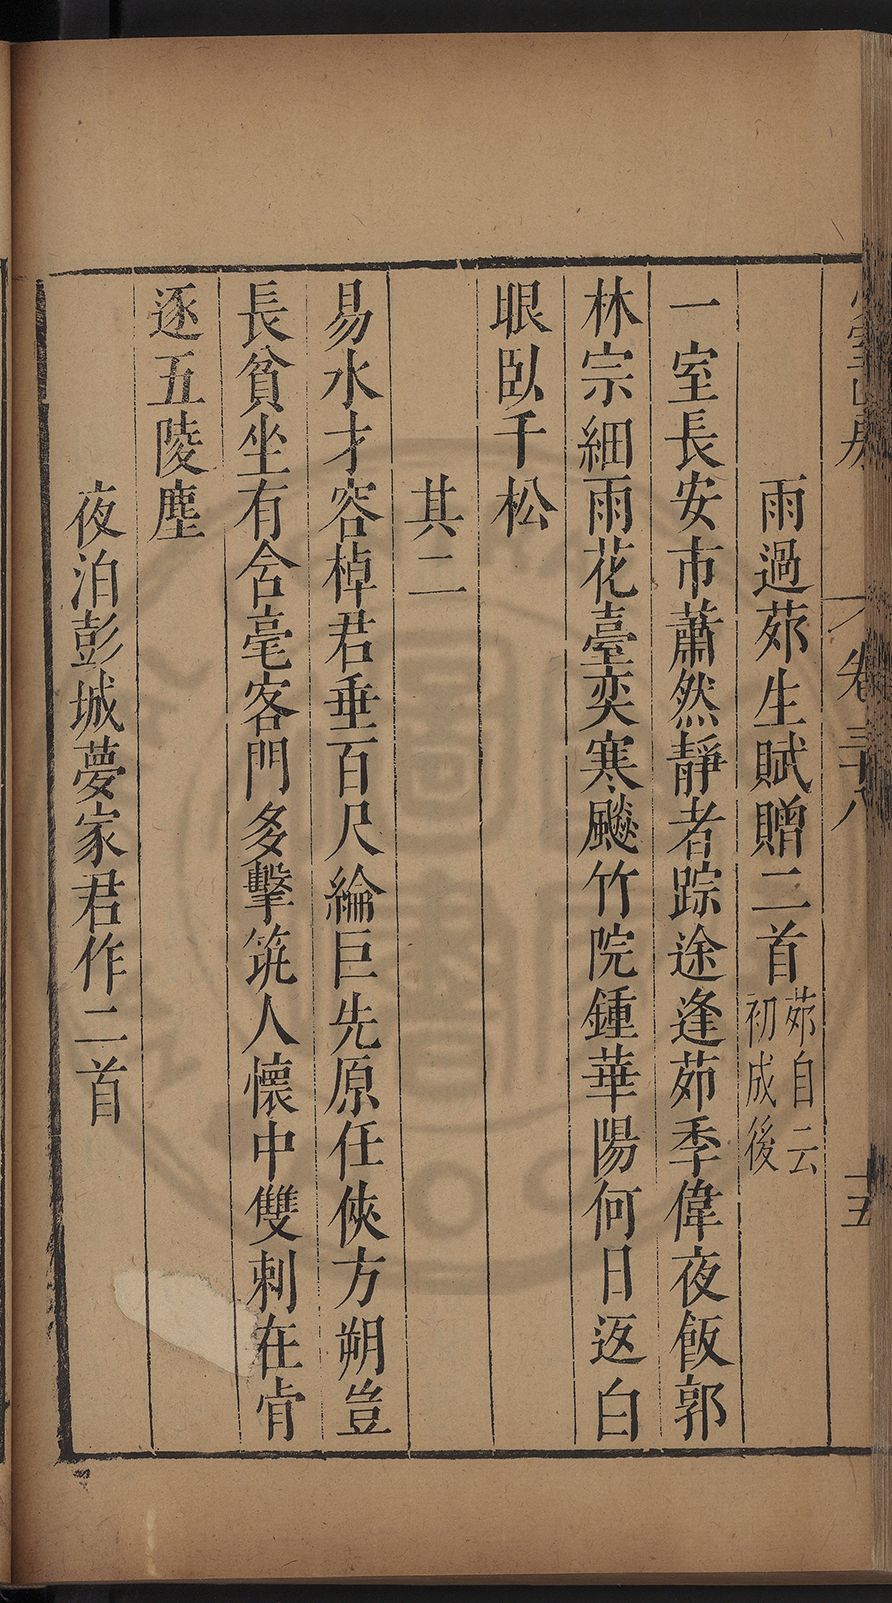 雨過茆生賦贈二首茆自云初成後
一室長安市蕭然靜者踪途逢茆季偉夜飯郭
林宗細雨花臺奕寒颷竹院鍾華陽何日返白
眼臥千松
其二
易水才容棹君垂百尺綸巨先原任俠方朔豈
長貧坐有含毫客門多擊筑人懷中雙刺在肯
逐五陵塵
夜泊彭城夢家君作二首
卷三十八
十五